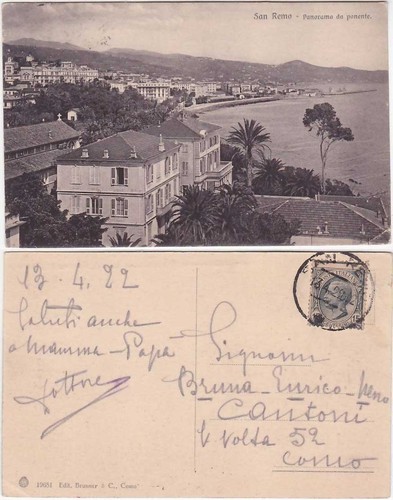 San Remo - Panorama da ponente.
13. 4. 22
Saluti anche
a Mamma - Papà
Signorine
Bruna - Enrica - Nera
Cantoni
V Volta 52
Como
19651 Edit. Brunner & C., Como